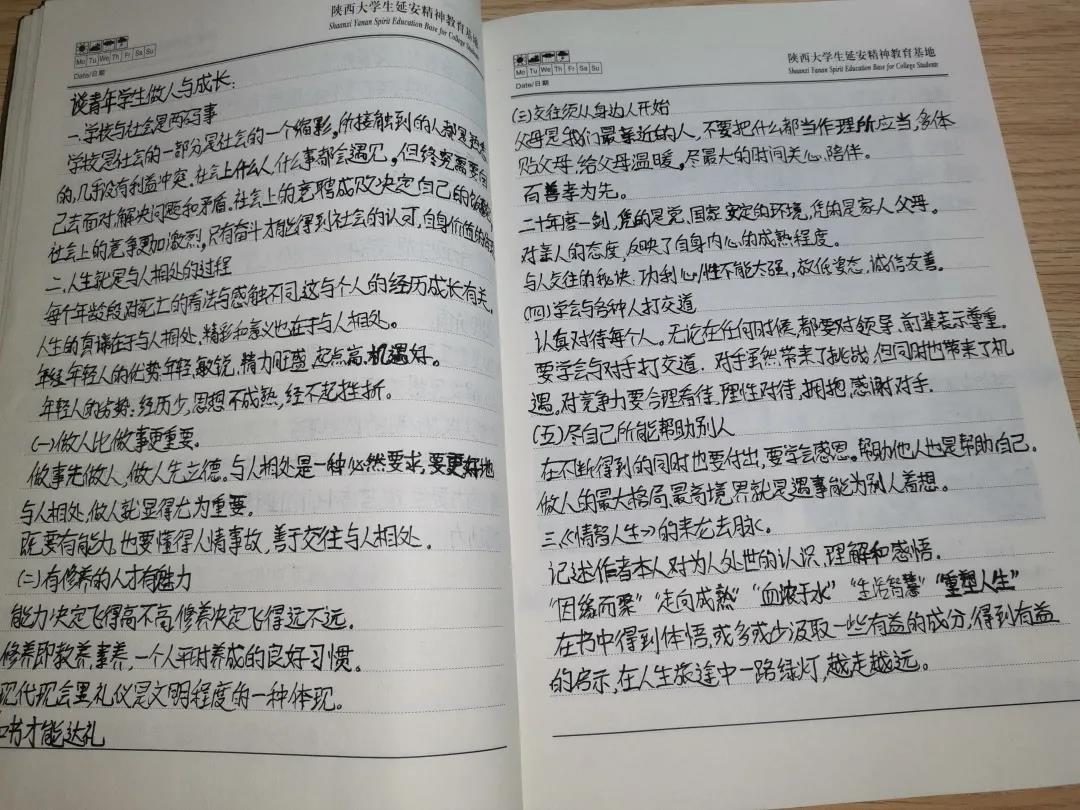 陕西大学生延安精神教育基地
Shaanxi Yanan Spirit Education Base for College Stude
Mo Tu We Th Fr Sa Su
Date/日期
谈青年学生做人与成长:
一.学校与社会是两码事
学校是社会的一部分是社会的一个缩影。所接触到的人都是
的,几乎没有利益冲突。社会上什么人,什么事都会遇见。但终究需要自
己去面对,解决问题和矛盾。社会上的竞聘成败决定自己的
社会上的竞争更加激烈。只有奋斗才能得到社会的认可,自身价值的
二.人生就是与人相处的过程
每个年龄段,对死亡的看法与感触不同,这与个人的经历成长有关。
人生的真谛在于与人相处,精彩和意义也在于与人相处。
年轻人的优势:年轻,敏锐,精力旺盛,起点高,机遇好。
年轻人的劣势:经历少,思想不成熟,经不起挫折。
(一)做人比做事更重要。
做事先做人,做人先立德。与人相处是一种必然要求,要更好地
与人相处,做人就显得尤为重要。
既要有能力,也要懂得人情事故,善于交往与人相处。
(二)有修养的人才有魅力
能力决定飞得高不高,修养决定飞得远不远。
修养即教养,素养,一个人平时养成的良好习惯。
现代社会里,礼仪是文明程度的一种体现。
知书才能达礼
陕西大学生延安精神教育基地
Shaanxi Yanan Spirit Education Base for College Students
Mo Tu We Th Fr Sa Su
Date/日期
(三)交往须从身边人开始
父母是我们最亲近的人,不要把什么都当作理所应当,多体
贴父母,给父母温暖。尽最大的时间关心、陪伴。
百善孝为先。
二十年磨一剑,凭的是党、国家安定的环境,凭的是家人、父母。
对亲人的态度,反映了自身内心的成熟程度。
与人交往的秘诀:功利心/性不能太强,放低姿态,诚信友善。
(四)学会与各种人打交道
认真对待每个人。无论在任何时候,都要对领导、前辈表示尊重。
要学会与对手打交道.对手虽然带来了挑战,但同时也带来了机
遇。对竞争力要合理看待,理性对待,拥抱,感谢对手.
(五)尽自己所能帮助别人
在不断得到的同时也要付出,要学会感恩。帮助他人也是帮助自己。
做人的最大格局,最高境界就是遇事能为别人着想。
三.《情智人生》的来龙去脉。
记述作者本人对为人处世的认识,理解和感悟.
“因缘而聚”“走向成熟”“血浓于水”“生活智慧”“重塑人生”
在书中得到体悟,或多或少汲取一些有益的成分,得到有益
的启示,在人生旅途中一路绿灯,越走越远。